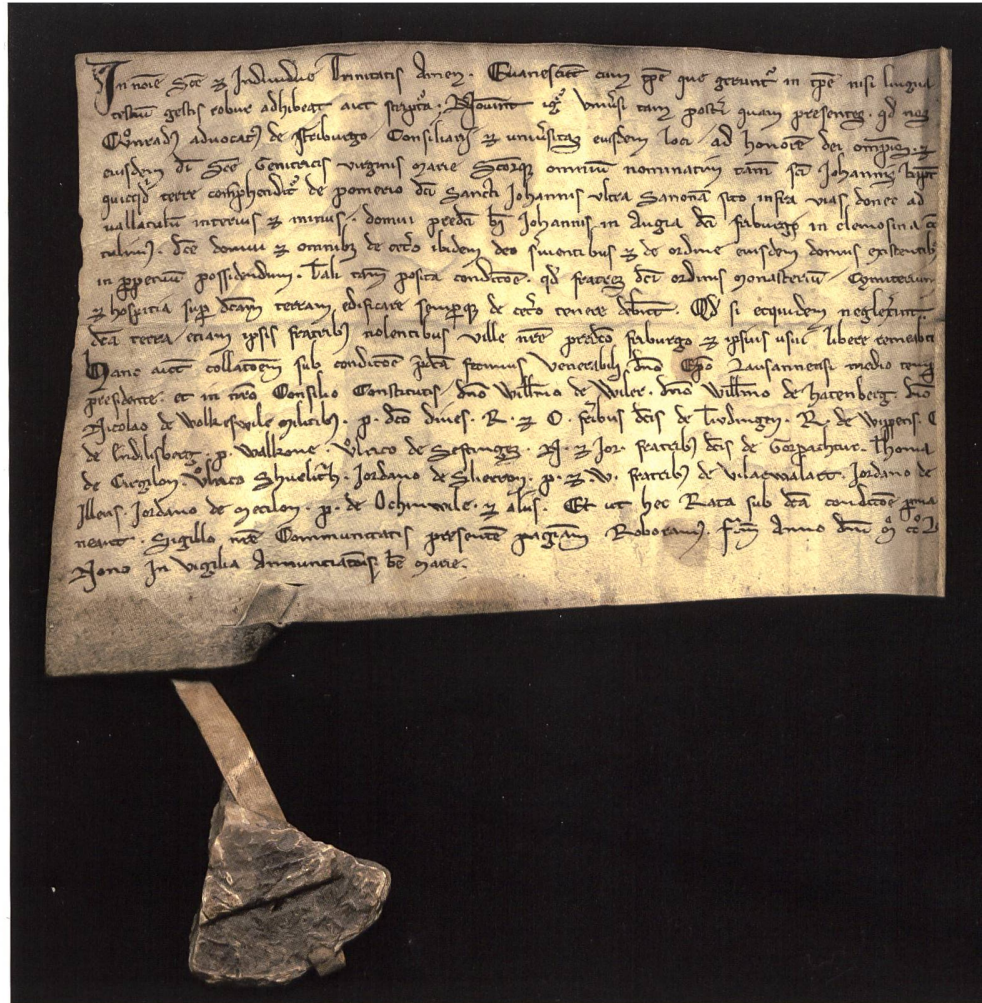 In noie Sce & Individue Trinitatis Amen. Evanescut cum tpe que gerunt in tpe nisi lingua
testiu gestis robur adhibeat aut scriptura. Noverint igr universi tam posteri quam presentes. qd nos
Cuonradus advocatus de Friburgo Consiliarii & universitas eiusdem loci ad honore dei omptis. &
eiusdem di Sce Genitricis virginis Marie Sctorque omniu nominatim tam sci Johannis
quicqd terre comphendit de pomerio dci Sancti Johannis ultra Sanona sito infra vias donec ad
vallaculu interius & inferius. domui predci bi Johannis in Augia dci friburgo in elemosina
dce domui & omnibus de cetero ibidem deo servientibus & de ordine eiusdem domus existentib
in perpetuu possidendum. Tali tam posita conditoe. qd fratres dci ordinis monasterium Cymiterium
& hospitia super dcam terram edificare semperque de cetero tenere debent. Qd si ecquidem neglexerint.
dca terra etiam ipsis fratribus nolentibus ville nre predco friburgo & ipsius usui libere remeabit
Hanc aut collatoem sub conditoe pdca fecimus venerabili dno Epo Lausannensi medio
presidente. et in nro Consilio Constitutis dno Willmo de Wiler. dno Willmo de hatenberg. dno
Nicolao de Wolkeswile militibus. p. dco dives. R. & O. fribus dcis de Tudingen. R. de Wippens. C
de Endilisberg. p. Walkone. Uolrico de Seftinges. N. & Jor. fratribus dcis de Corpachtur. Thoma
de Cirgilon. Uolrico Shuelich. Jordano de Slierron. p. & W. fratribus de Vilarwalart. Jordano de
Illens. Jordano de Mecilon. p. de Ochinwile. & aliis. Et ut hec Rata sub dca conditoe perma
neant. Sigillo nre Communitatis presente paginam Roboravimus. Actum Anno dni
Nono In vigilia Annunciatois be Marie.